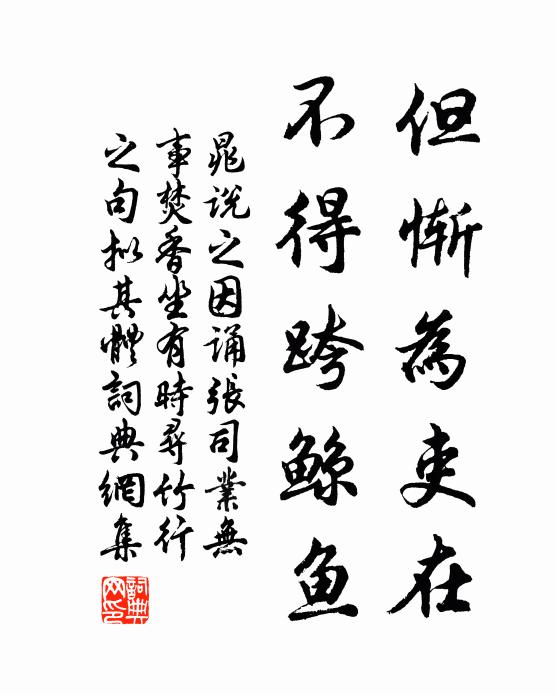 但慚為吏在
不得跨鲸鱼
晁说之因诵張司業無
事焚香坐有時尋竹行
之句拟其體詞典網集